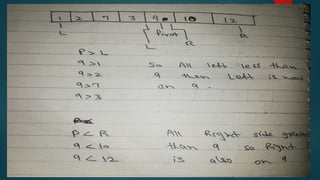 1 2 7 3 9 10 12
L Pivot R
L R
P > L
9 > 1 So All left less than
9 > 2 9 then Left is now
9 > 7 on 9.
9 > 3
P < R All Right side greater
9 < 10 than 9 so Right
9 < 12 is also on 9